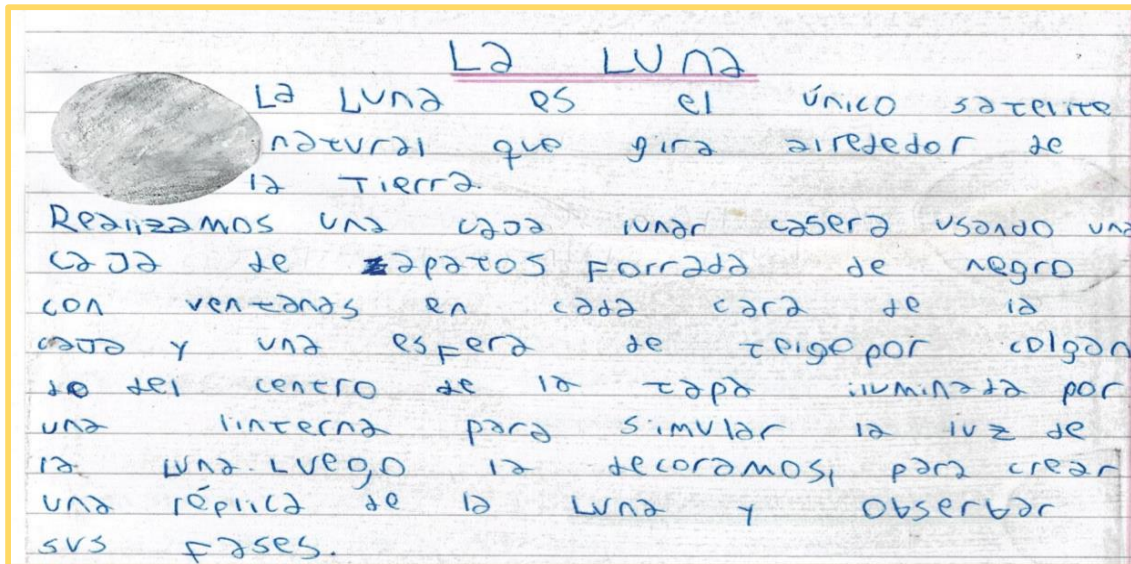 La Luna
La Luna es el único satelite
natural que gira alrededor de
la Tierra.
Realizamos una caja lunar casera usando una
caja de zapatos forrada de negro
con ventanas en cada cara de la
caja y una esfera de telgopor colgan
do del centro de la tapa iluminada por
una linterna para simular la luz de
la luna. Luego la decoramos, para crear
una réplica de la Luna y observar
sus fases.